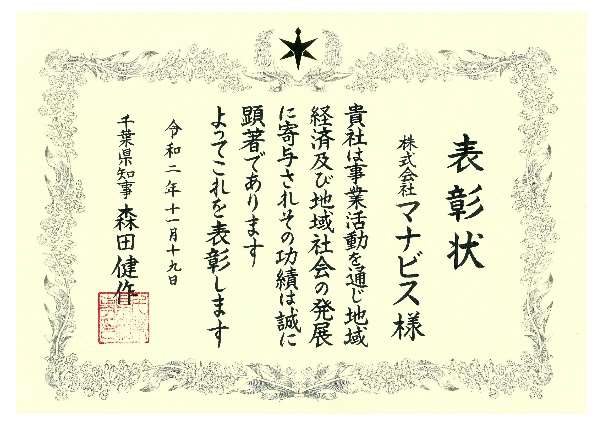 表彰状
株式会社マナビス様
貴社は事業活動を通じ地域
経済及び地域社会の発展
に寄与されその功績は誠に
顕著であります
よってこれを表彰します
令和二年十一月十九日
千葉県知事 森田健作